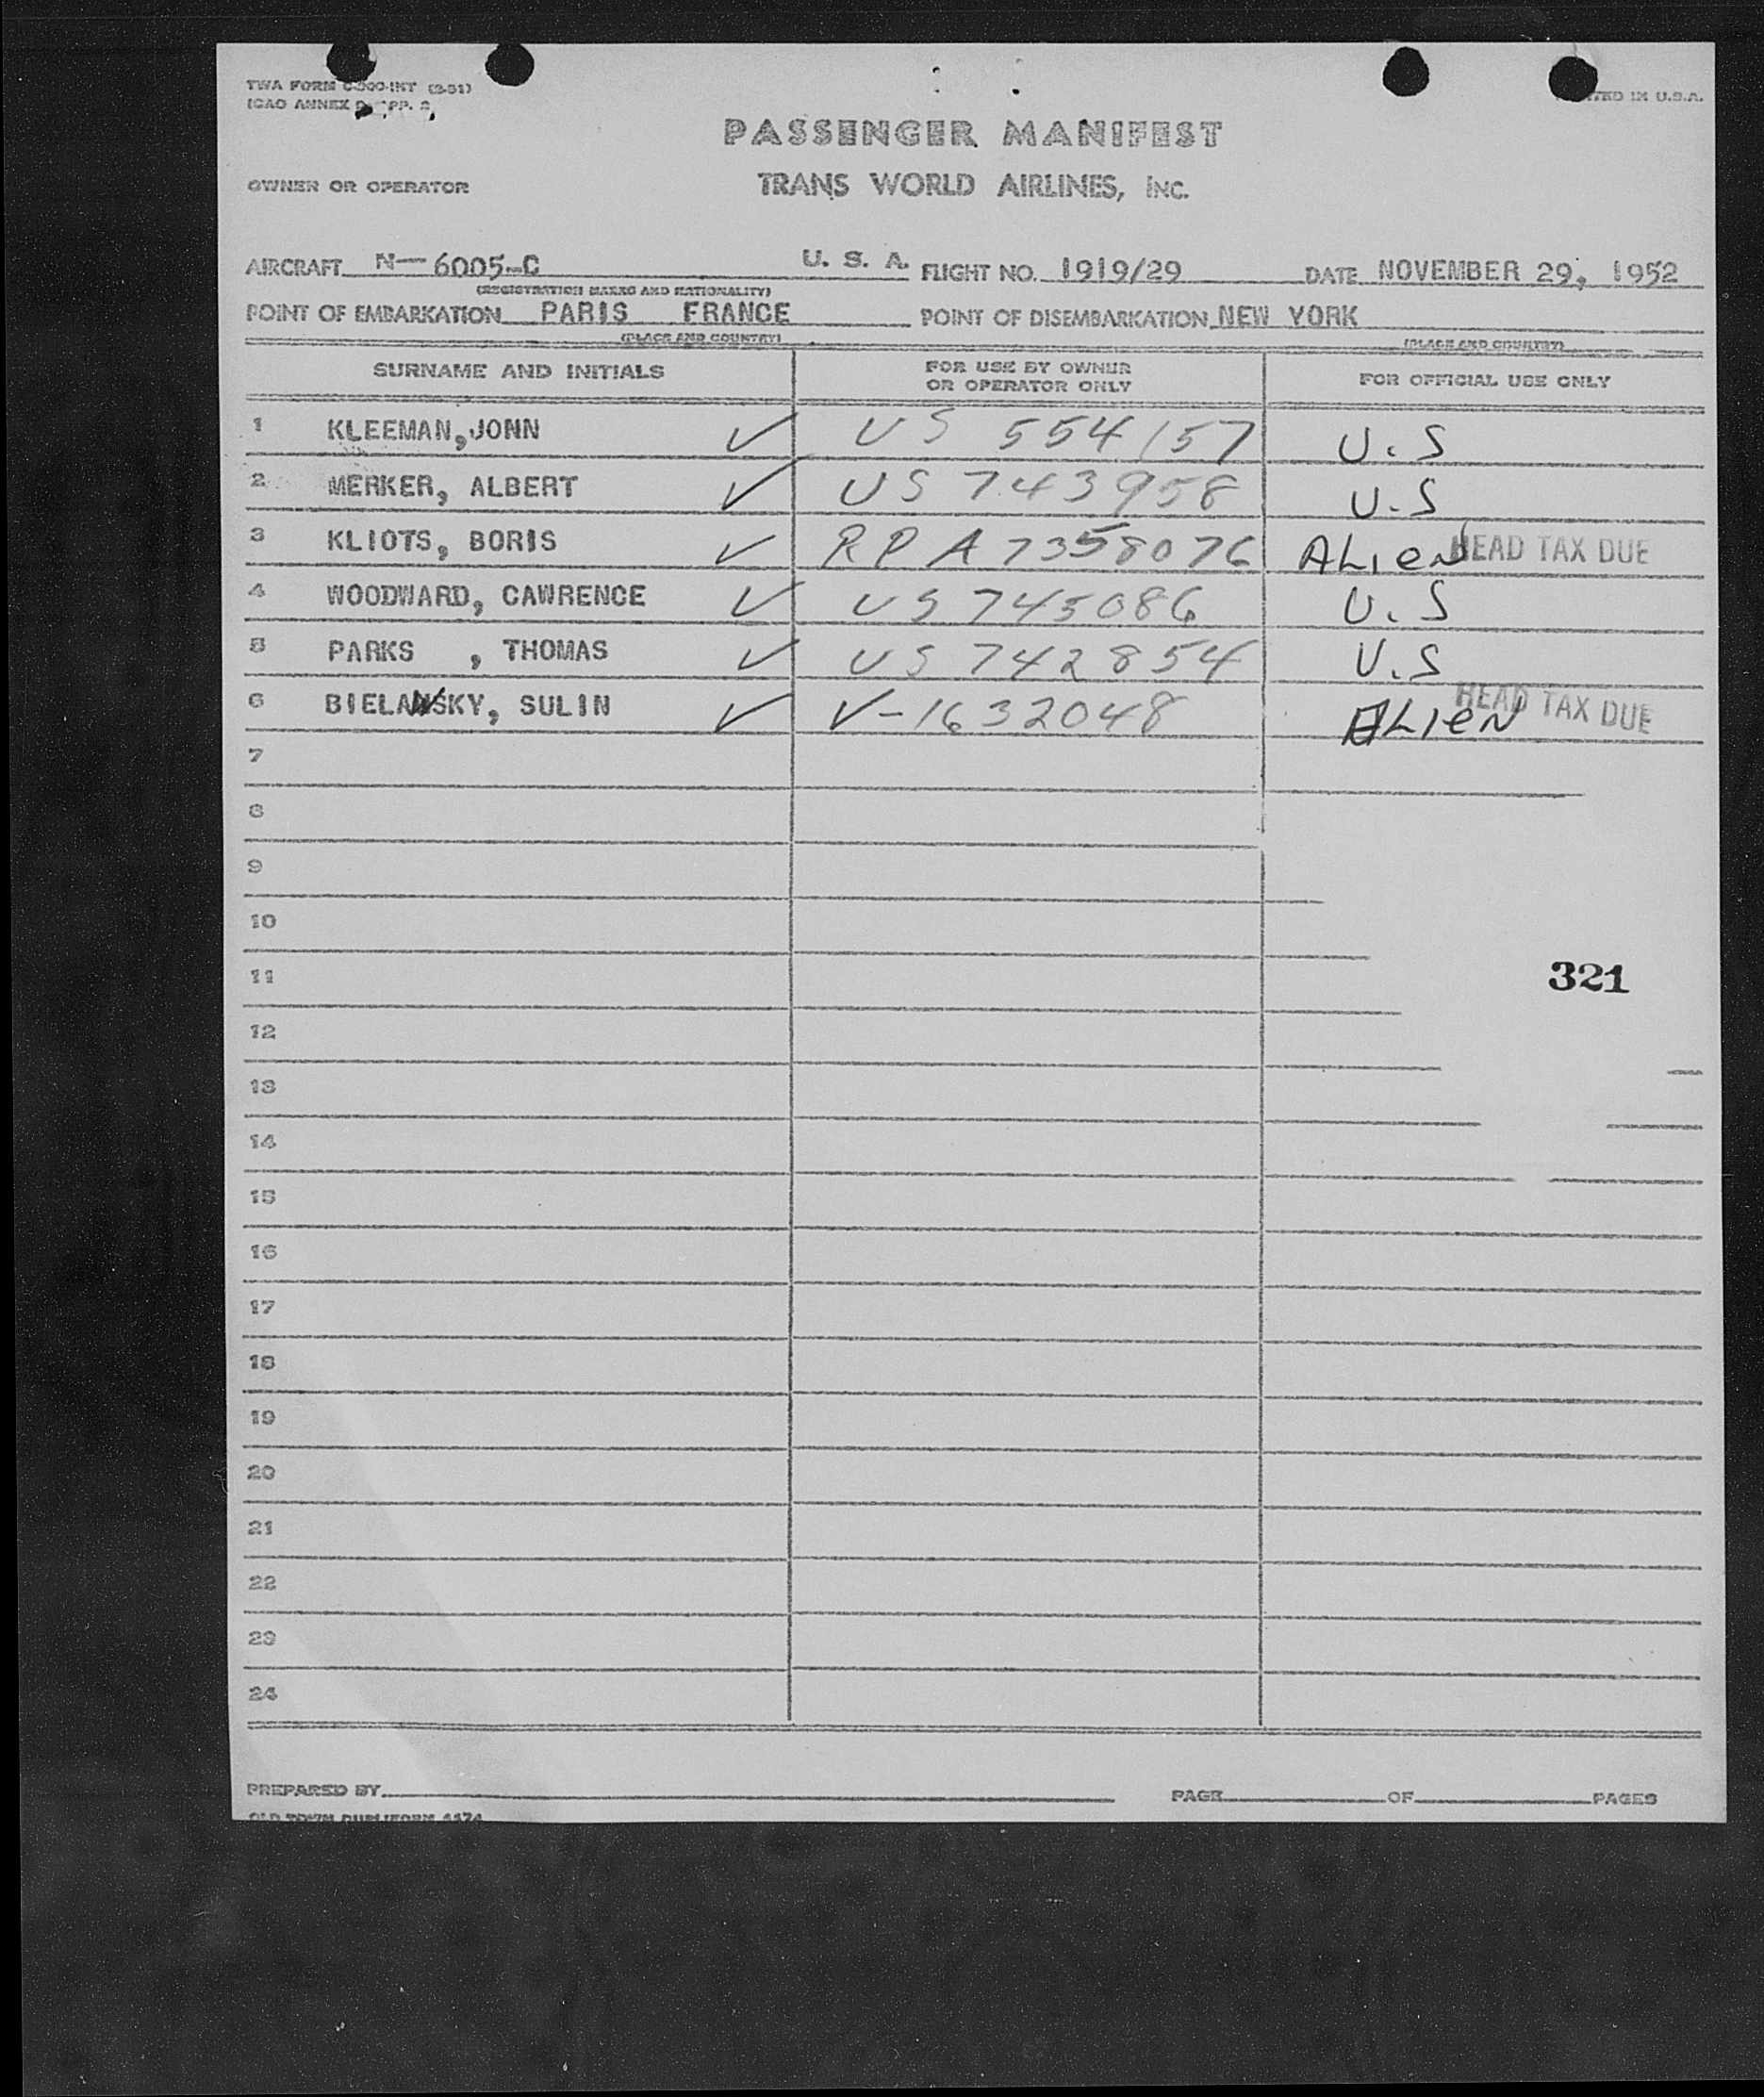 TWA FORM C-300-INT (2-51)
ICAO ANNEX 9 APP. 2
PRINTED IN U.S.A.
PASSENGER MANIFEST
OWNER OR OPERATOR TRANS WORLD AIRLINES, INC.
AIRCRAFT N-6005-C U. S. A. FLIGHT NO. 1919/29 DATE NOVEMBER 29, 1952
(REGISTRATION MARKS AND NATIONALITY)
POINT OF EMBARKATION PARIS FRANCE POINT OF DISEMBARKATION NEW YORK
(PLACE AND COUNTRY) (PLACE AND COUNTRY)
SURNAME AND INITIALS FOR USE BY OWNER OR OPERATOR ONLY FOR OFFICIAL USE ONLY
1 KLEEMAN, JONN ✓ US 554157 U.S
2 MERKER, ALBERT ✓ US 743958 U.S
3 KLIOTS, BORIS ✓ RP A7358076 ALIEN HEAD TAX DUE
4 WOODWARD, CAWRENCE ✓ US 745086 U.S
5 PARKS , THOMAS ✓ US 742854 U.S
6 BIELAWSKY, SULIN ✓ V-1632048 ALIEN HEAD TAX DUE
7
8
9
10
11 321
12
13
14
15
16
17
18
19
20
21
22
23
24
PREPARED BY PAGE OF PAGES